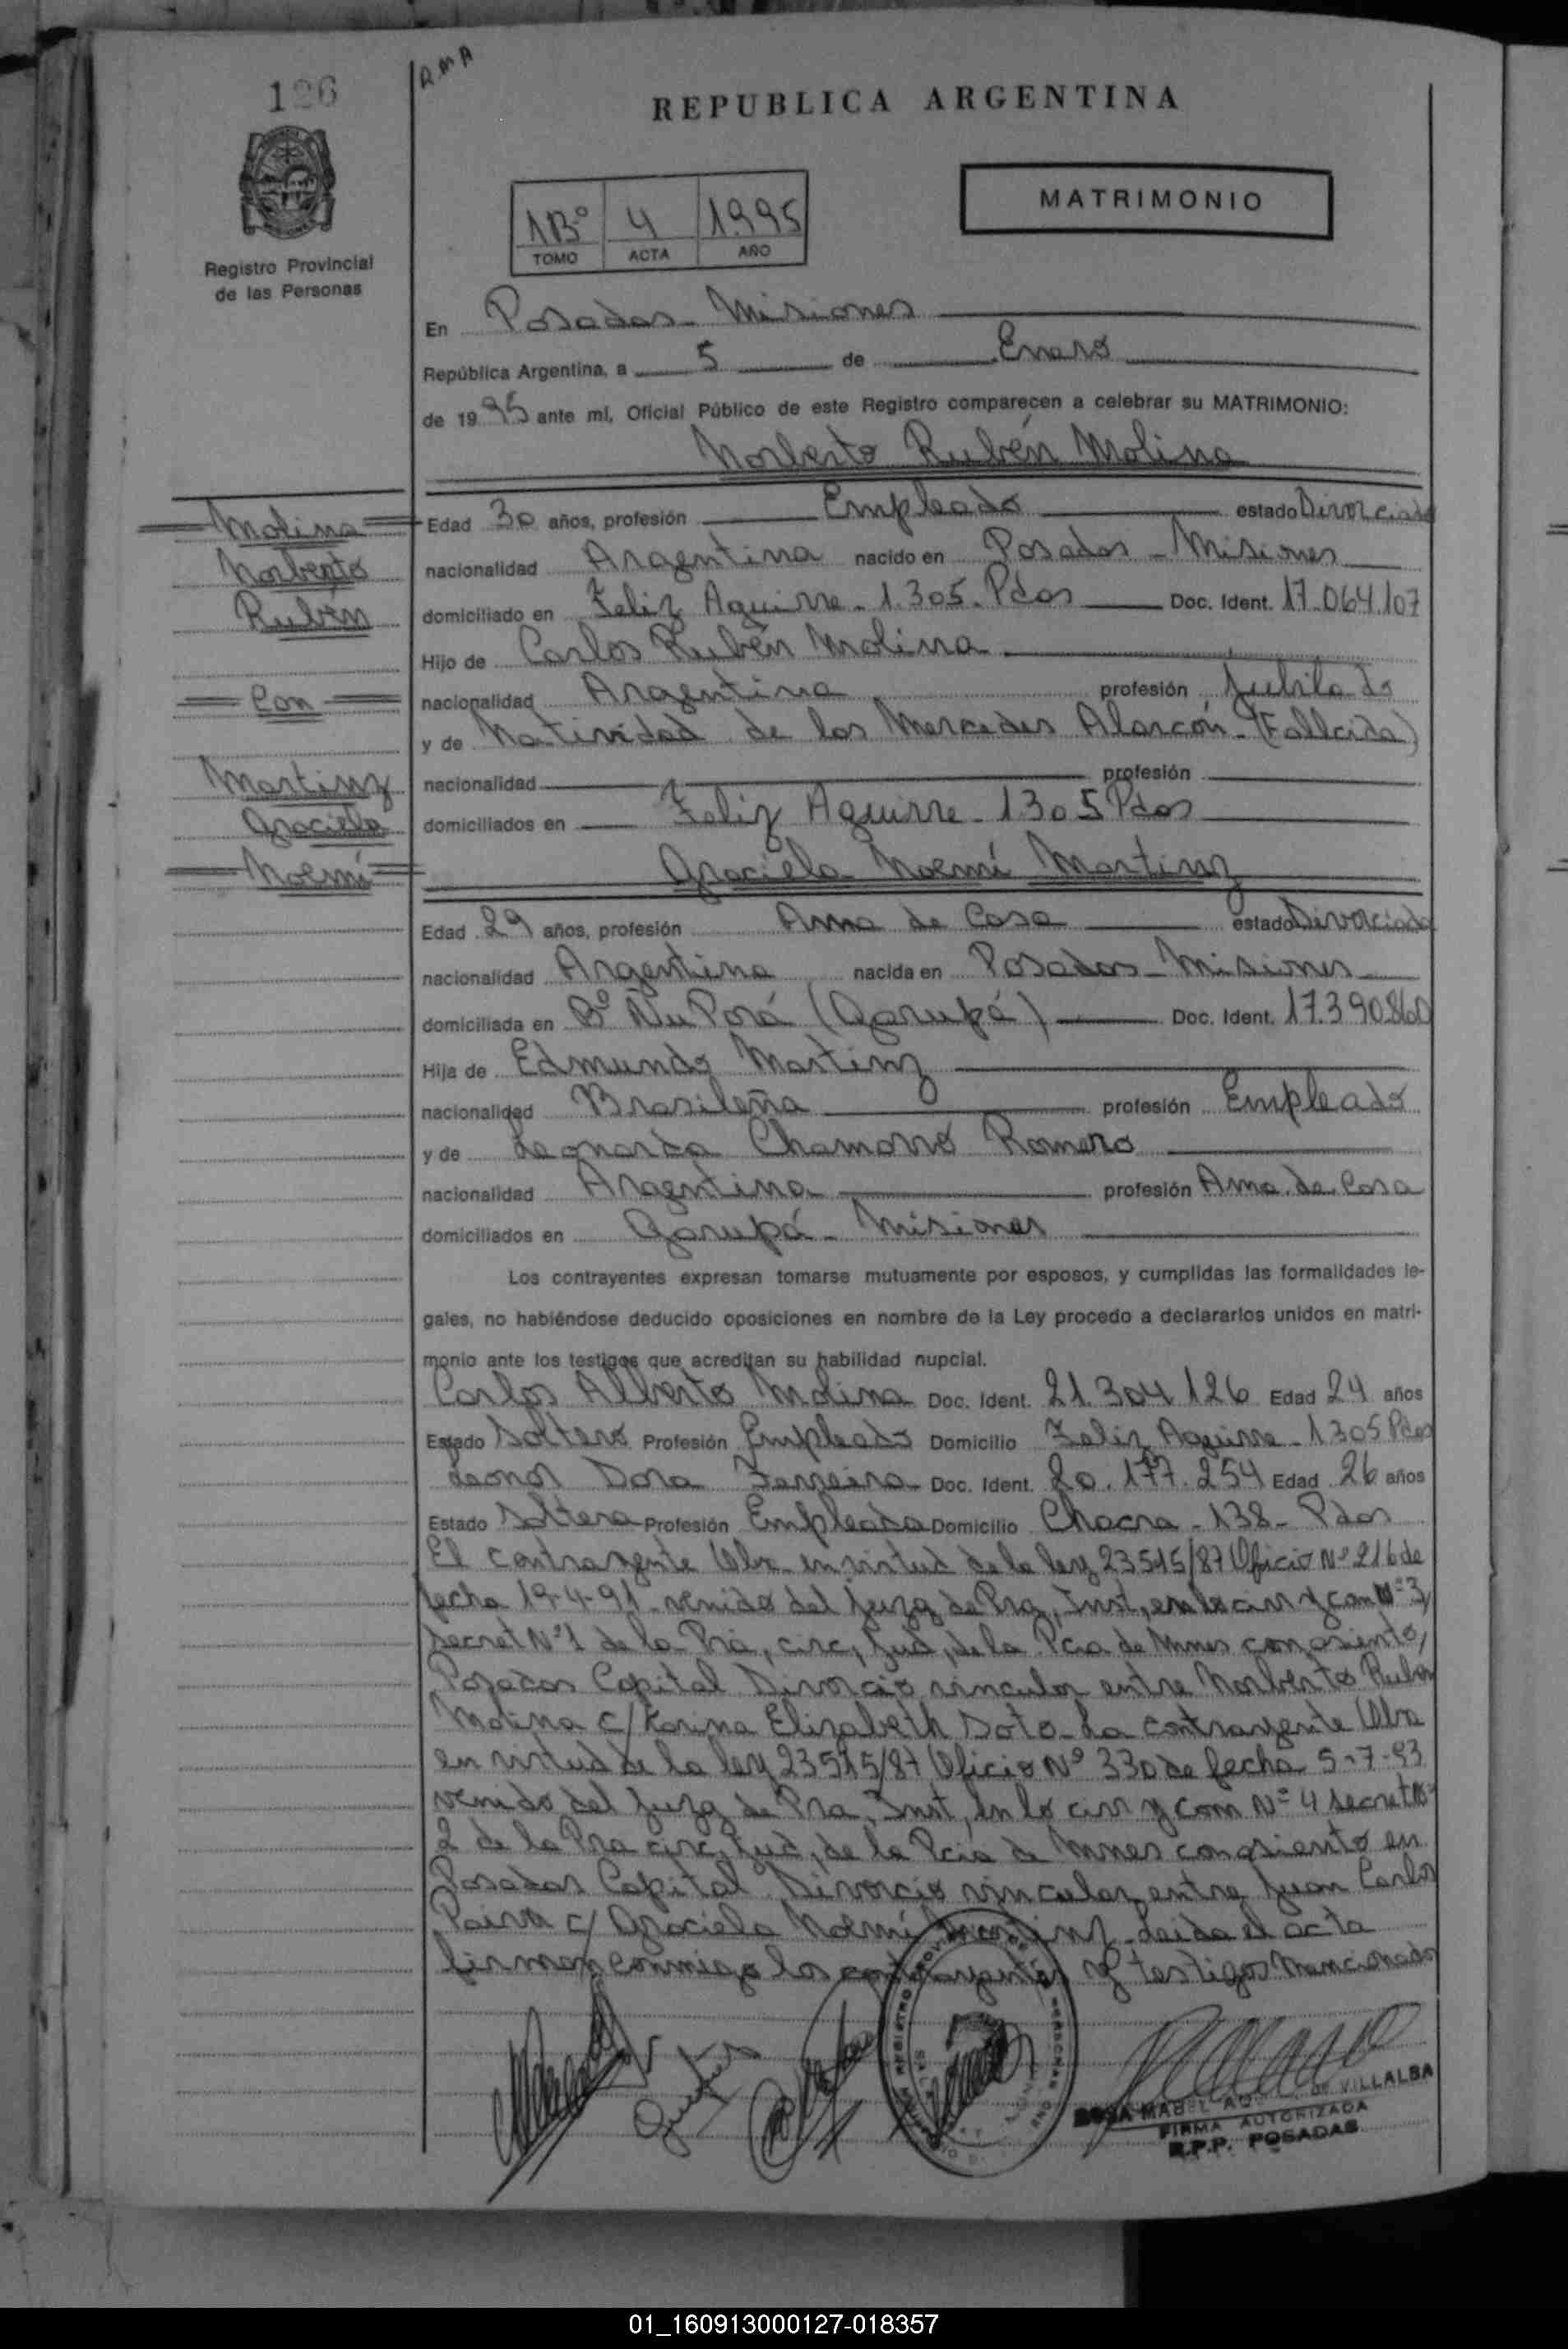 126
RMA
REPUBLICA ARGENTINA
Registro Provincial
de las Personas
1Bº 4 1995
TOMO ACTA AÑO
MATRIMONIO
En Posadas - Misiones
República Argentina, a 5 de Enero
de 1995 ante mí, Oficial Público de este Registro comparecen a celebrar su MATRIMONIO:
Norberto Rubén Molina
Molina
Norberto
Rubén
Con
Martinz
Graciela
Noemí
Edad 30 años, profesión Empleado estado Divorciado
nacionalidad Argentina nacido en Posadas - Misiones
domiciliado en Feliz Aguirre - 1.305 - Pdas Doc. Ident. 17.064.107
Hijo de Carlos Rubén Molina
nacionalidad Argentina profesión Jubilado
y de Natividad de las Mercedes Alarcón - (Fallecida)
nacionalidad profesión
domiciliados en Feliz Aguirre - 1305 Pdas
Graciela Noemí Martinz
Edad 29 años, profesión Ama de Casa estado Divorciada
nacionalidad Argentina nacida en Posadas - Misiones
domiciliada en Bº Ñu Porá (Garupá) Doc. Ident. 17.390.860
Hija de Edmundo Martinz
nacionalidad Brasileña profesión Empleado
y de Leonarda Chamorro Romero
nacionalidad Argentina profesión Ama de Casa
domiciliados en Garupá - Misiones
Los contrayentes expresan tomarse mutuamente por esposos, y cumplidas las formalidades le-
gales, no habiéndose deducido oposiciones en nombre de la Ley procedo a declararlos unidos en matri-
monio ante los testigos que acreditan su habilidad nupcial.
Carlos Alberto Molina Doc. Ident. 21.304.126 Edad 24 años
Estado Soltero Profesión Empleado Domicilio Feliz Aguirre - 1305 Pdas
Leonor Dora Ferreira Doc. Ident. 20.177.254 Edad 26 años
Estado Soltera Profesión Empleada Domicilio Chacra - 138 - Pdas
El contrayente en virtud de la ley 23515/87 Oficio Nº 216 de
fecha 19-4-91 - venido del Juzg de Pra, Inst, en lo civ y com Nº 3,
secret Nº 1 de la Pra, circ, Jud, de la Pcia de Mnes con asiento,
Posadas Capital Divorcio vincular entre Norberto Rubén
Molina c/ Karina Elizabeth Soto - La contrayente
en virtud de la ley 23515/87 Oficio Nº 330 de fecha 5-7-93
venido del Juzg de Pra, Inst, en lo civ y com Nº 4 secret Nº
2 de la Pra circ, Jud, de la Pcia de Mnes con asiento en
Posadas Capital Divorcio vincular entre Juan Carlos
Paiva c/ Graciela Noemí Martinz - Leida el acta
firman conmigo los contrayentes y testigos mencionados
VILLALBA
FIRMA AUTORIZADA
R.P.P. POSADAS
01_160913000127-018357